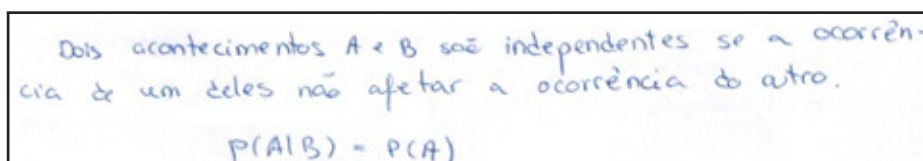 Dois acontecimentos A e B são independentes se a ocorrên-
cia de um deles não afetar a ocorrência do outro.
P(A|B) = P(A)